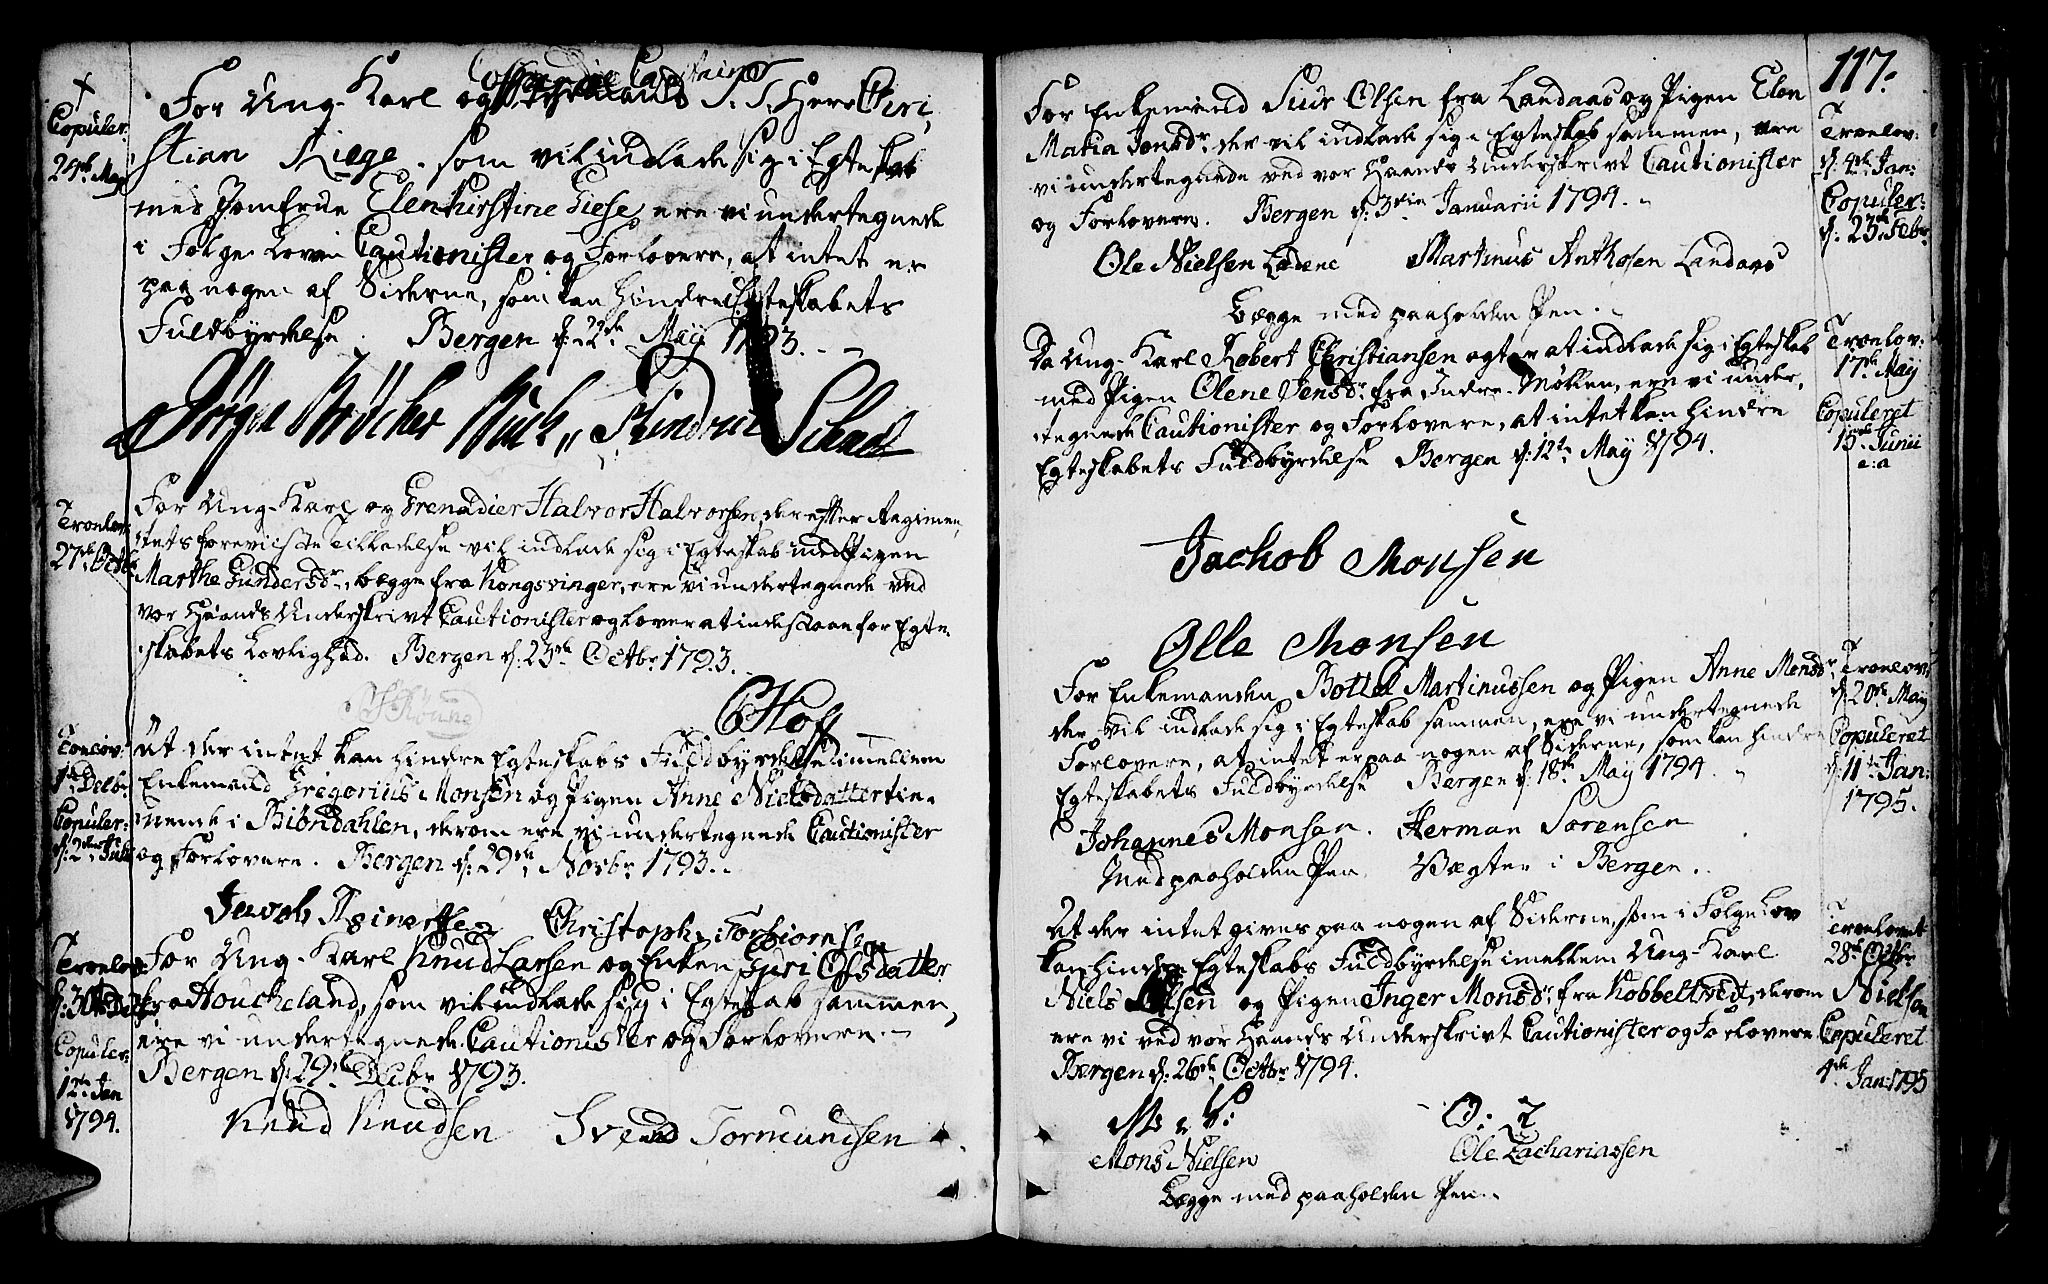 †
Copuler:
29de May
For Ung-Karl og Coffardie Capitaine S. T. Herr Chri,
stian Riege. som vil indlade sig i Egteskab
med Jomfrue Elenkirstine Giese, ere vi undertegnede
i Følge Loven Cautionister og Forlovere, at intet er
paa nogen af Siderne, som kan hindre Egteskabets
Fuldbyrdelse. Bergen d: 22de May 1793.
Jørgen Brücher Buck, Hendrich Schad
Troelov:
27de Octbr
For Ung-Karl og Grenadier Halvor Halvorsen, der efter Regimen,
tets foreviiste Tilladelse vil indlade sig i Egteskab med Pigen
Marthe Gundersdr, begge fra Kongsvinger, ere vi undertegnede ved
vor Haands Underskrivt Cautionister og lover at indestaae for Egte,
skabets Lovlighed. Bergen d: 23de Octbr: 1793.
CHoff
Troelov:
1de Decbr
Copuler:
d: 2den Jule
At der intet kan hindre Egteskabs Fuldbyrdelse imellem
Enkemand Gregorius Monsen og Pigen Anne Nielsdatter tie,
nende i Biöndahlen, derom ere vi undertegnede Cautionister
og Forlovere. Bergen d: 29de Novbr 1793.
Jacob Reinertsen Christopher Torbiörnsen
Troelov:
d: 30de Decbr
Copuler:
12te Jan
1794.
For Ung-Karl Knud Larsen og Enken Guri Olsdatter
fra Houcheland, som vil indlade sig i Egteskab sammen,
ere vi undertegnede Cautionister og Forlovere.
Bergen d: 29de Decbr 1793.
Knud Knudsen Svend Tormundsen
117.
For Enkemand Siur Olsen fra Landaas og Pigen Elen
Maria Jensdr der vil indlade sig i Egteskab sammen, ere
vi undertegnede ved vor Haands Underskrivt Cautionister
og Forlovere. Bergen d: 3die Januarii 1794.
Ole Nielsen Ladene Martinus Anthosen Landaas
Begge med paaholden Pen.
Troelov:
d: 4de Jan:
Copuler:
d: 23de Febr:
Da Ung-Karl Robert Christiansen agter at indlade sig i Egteskab
med Pigen Olene Jensdr fra Indre-Møllen, ere vi under,
tegnede Cautionister og Forlovere, at intet kan hindre
Egteskabets Fuldbyrdelse Bergen d: 12te May 1794.
Jachob Monsen
Olle Monsen
Troelov:
17de May
Copuleret
15de Junii
e: a
For Enkemanden Bottel Martinussen og Pigen Anne Monsdr
der vil indlade sig i Egteskab sammen, ere vi undertegnede
Forlovere, at intet er paa nogen af Siderne, som kan hindre
Egteskabets Fuldbyrdelse Bergen d: 18de May 1794.
Johannes Monsen. Herman Sorensen
Med paaholden Pen Vægter i Bergen.
Troelov:
d: 20de May
Copuleret
d: 11te Jan:
1795.
At der intet gives paa nogen af Siderne, som i Følge Lov
kan hindre Egteskabs Fuldbyrdelse imellem Ung-Karl
Niels Olsen og Pigen Inger Monsdr fra Kobbeltvedt, derom
ere vi ved vor Haands Underskrivt Cautionister og Forlovere
Bergen d: 26de Octbr 1794.
O: Z
Mons Nielsen Ole Zachariassen
Begge med paaholden Pen.
Troelovet
28de Octbr
Copuleret
4de Jan: 1795